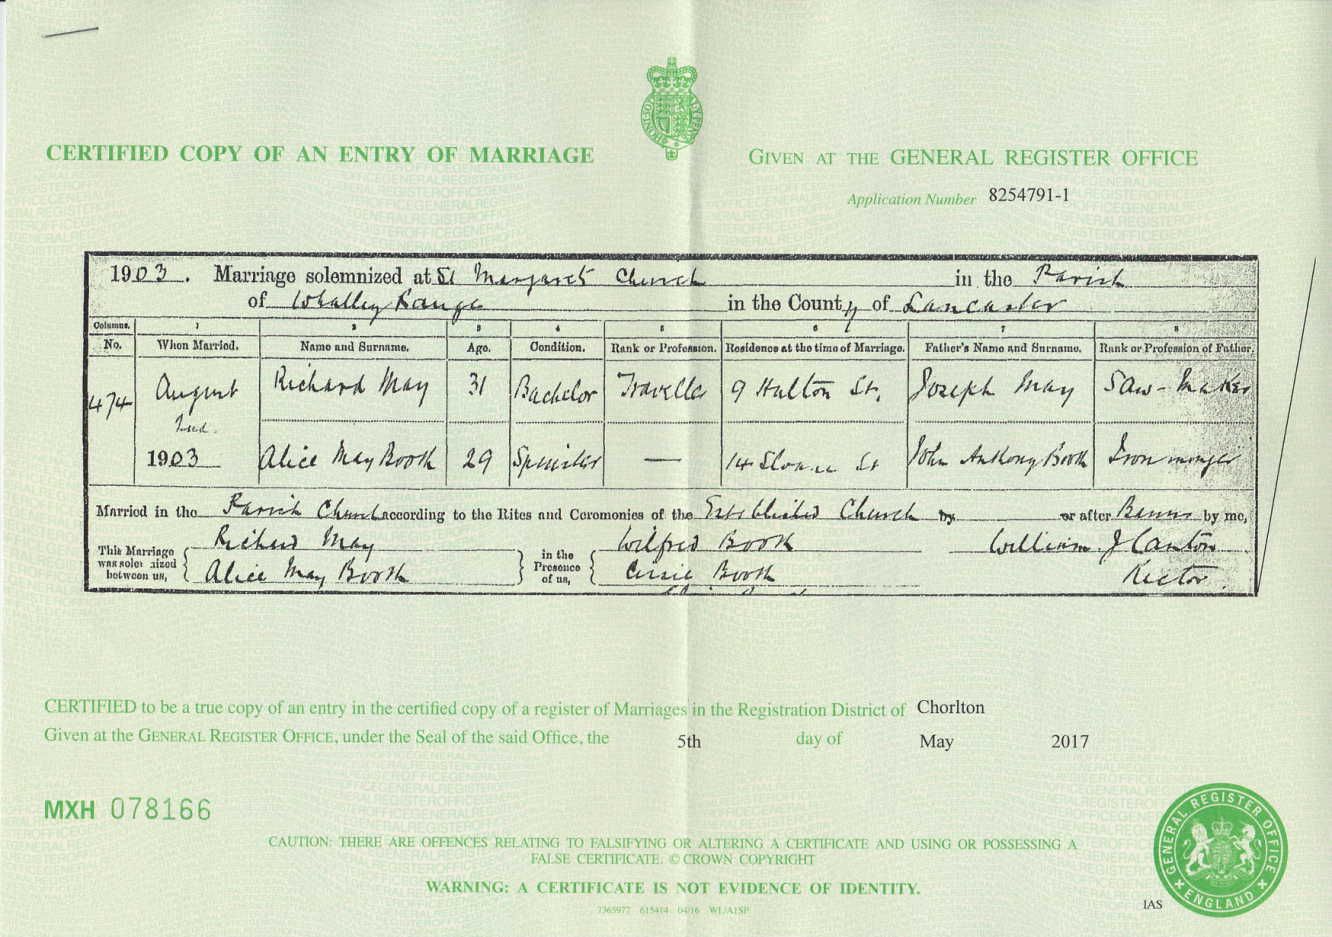 CERTIFIED COPY OF AN ENTRY OF MARRIAGE
GIVEN AT THE GENERAL REGISTER OFFICE
Application Number 8254791-1
1903. Marriage solemnized at St Margaret's Church in the Parish
of Whalley Range in the County of Lancaster
Columns. 1 2 3 4 5 6 7 8
No. When Married. Name and Surname. Age. Condition. Rank or Profession. Residence at the time of Marriage. Father's Name and Surname. Rank or Profession of Father.
474 August 2nd. 1903
Richard May 31 Bachelor Traveller 9 Hulton St. Joseph May Saw-Maker
Alice May Booth 29 Spinster — 14 Sloane St John Anthony Booth Ironmonger
Married in the Parish Church according to the Rites and Ceremonies of the Established Church by or after Banns by me,
This Marriage was solemnized between us, Richard May Alice May Booth
in the Presence of us, Wilfred Booth Cissie Booth
William J Canton Rector
CERTIFIED to be a true copy of an entry in the certified copy of a register of Marriages in the Registration District of Chorlton
Given at the GENERAL REGISTER OFFICE, under the Seal of the said Office, the 5th day of May 2017
MXH 078166
CAUTION: THERE ARE OFFENCES RELATING TO FALSIFYING OR ALTERING A CERTIFICATE AND USING OR POSSESSING A
FALSE CERTIFICATE. © CROWN COPYRIGHT
WARNING: A CERTIFICATE IS NOT EVIDENCE OF IDENTITY.
7365977 615414 04/16 WL/A1SP
IAS
GENERAL REGISTER OFFICE
ENGLAND